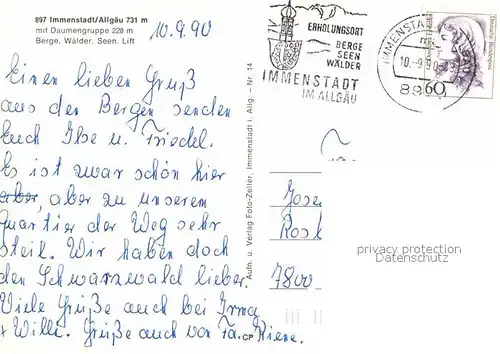 897 Immenstadt/Allgäu 731 m
mit Daumengruppe 228 m
Berge. Wälder. Seen. Lift
10.9.90
Einen lieben Gruß
aus den Bergen senden
Euch Ilse u. Friedel.
Es ist zwar schön hier
aber, aber zu unserem
Quartier der Weg sehr
steil. Wir haben doch
den Schwarzwald lieber.
Viele Grüße auch bei Irma
+ Willi. Grüße auch von Fa.
Aufn. u. Verlag Foto-Zeller, Immenstadt i. Allg. – Nr. 14
CP
ERHOLUNGSORT
BERGE
SEEN
WÄLDER
IMMENSTADT
IM ALLGÄU
10.-9.90
60
7800
privacy protection
Datenschutz